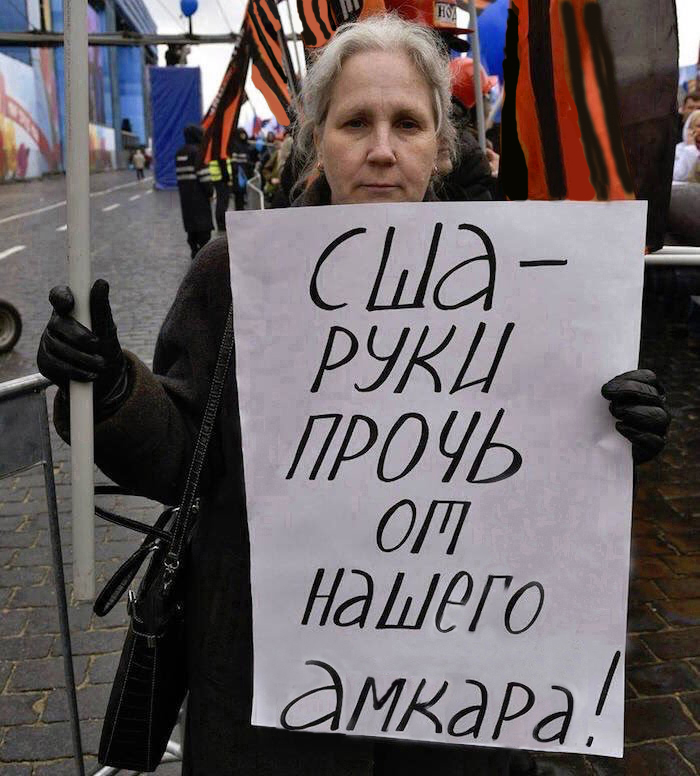 НОД
США -
РУКИ
ПРОЧЬ
ОТ
НАШЕГО
АМКАРА!